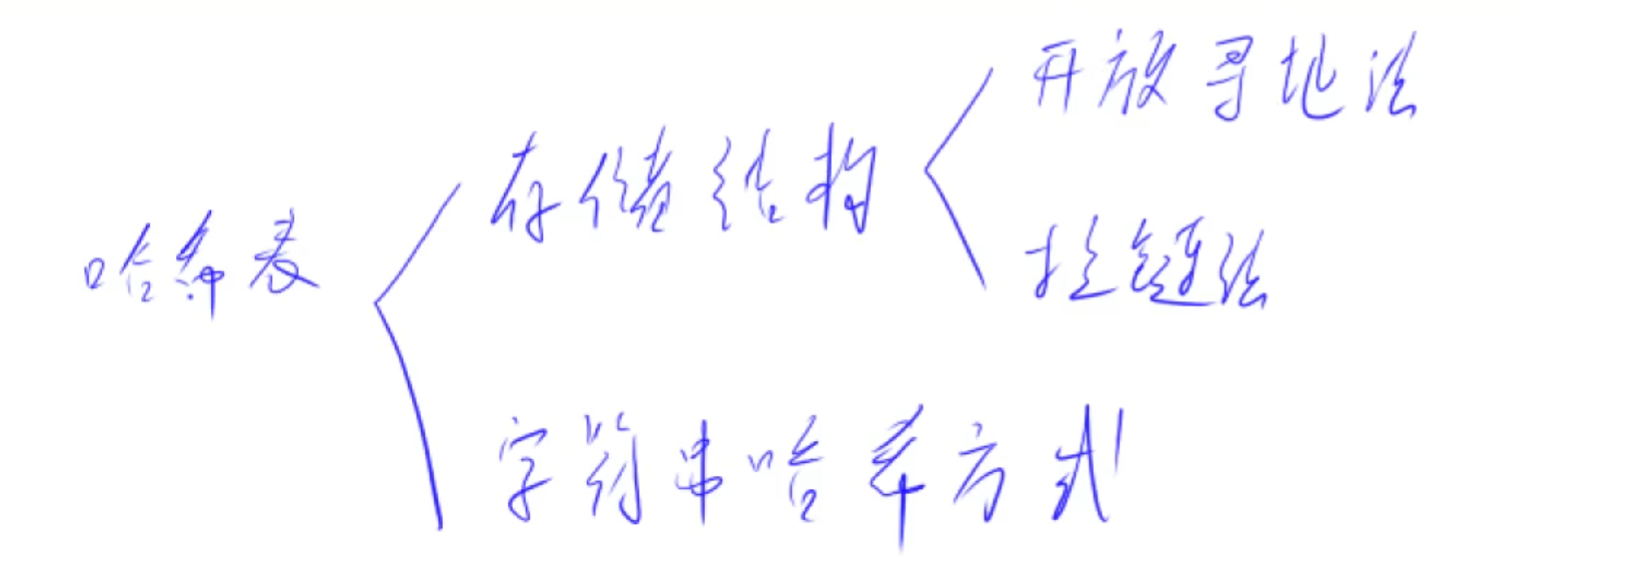 哈希表
存储结构
开放寻址法
拉链法
字符串哈希方式